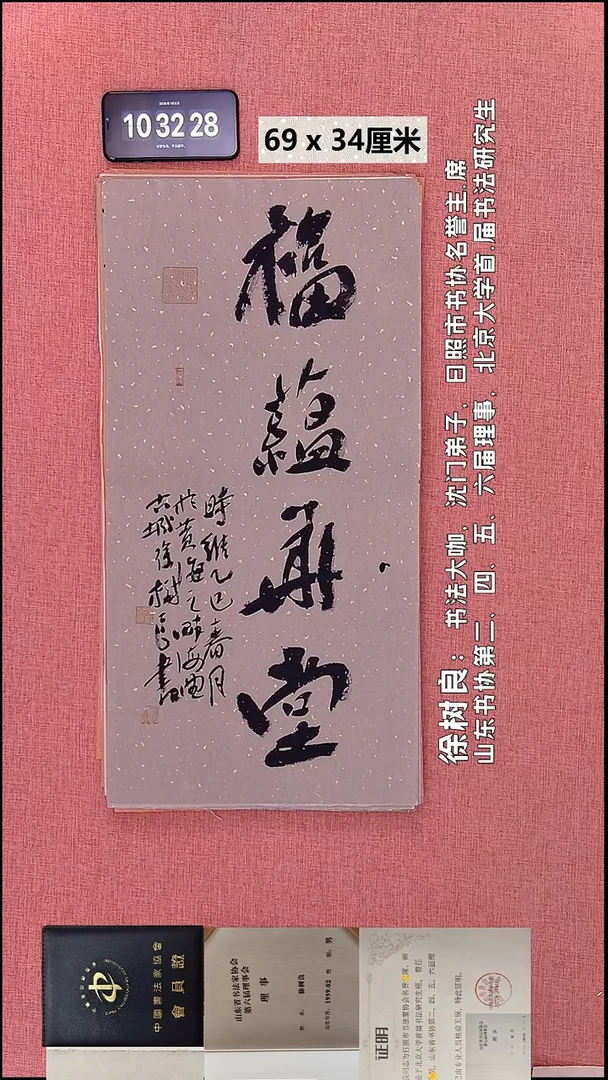 10 32 28
69 x 34厘米
福蕴华堂
時維乙巳春月
於黄海之畔海曲
古城徐樹良書
徐树良：书法大咖，沈门弟子，日照市书协名誉主.席
山东书协第二、四、五、六届理事，北京大学首.届书法研究生
中國書法家協會
會員證
山东省书法家协会
第六届理事会
理 事
徐树良
性 别：男
出生年月：1959.02
证明